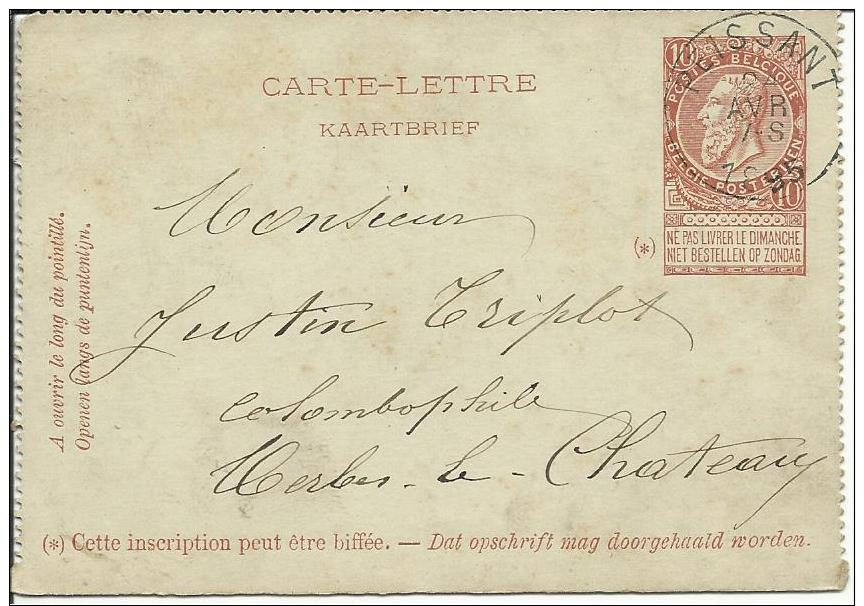 CARTE-LETTRE
KAARTBRIEF
10 10
POSTES BELGIQUE
BELGIE POSTERIJEN
PEISSANT
AVR
7-S
1895
(*)
NE PAS LIVRER LE DIMANCHE.
NIET BESTELLEN OP ZONDAG.
Monsieur
Justin Triplot
colombophile
Merbes-le-Chateau
A ouvrir le long du pointillé.
Openen langs de puntenlijn.
(*) Cette inscription peut être biffée. — Dat opschrift mag doorgehaald worden.